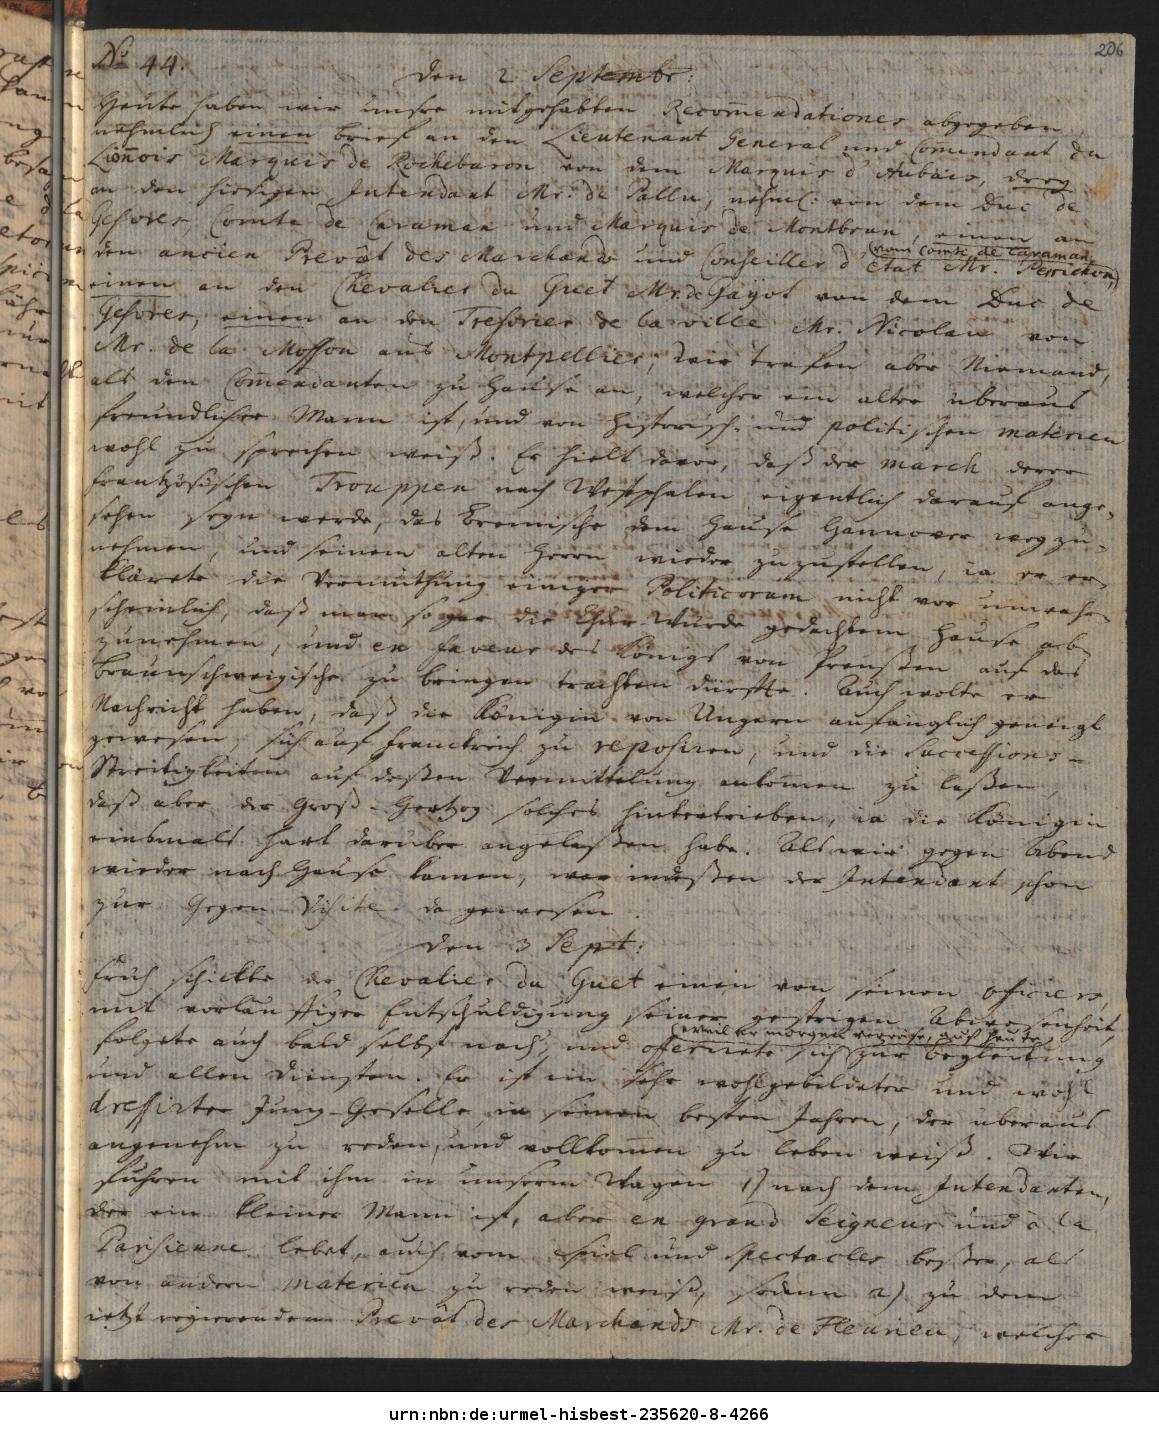 206
No 44.
den 2 Septembr:
Heute haben wir unsre mitgehabten Recom̅endationes abgegeben,
nehmlich einen brief an den Lieutenant General und Com̅endant du
Lion̅ois Marquis de Rochebaron von dem Marquis d'Aubais, drey
an den hiesigen Intendant Mr: de Pallu, nehml: von dem Duc de
Gesvres, Comte de Caraman und Marquis de Montbrun, einen an
(vom Comte de Caraman,)
den ancien Prevôt des Marchands und Conseiller d'Etat Mr. Perrichon,
einen an den Chevalier du Guet Mr. de Gayot von dem Duc de
Gesvres, einen an den Tresorier de la ville Mr. Nicolau von
Mr. de la Mosson aus Montpellier; wir trafen aber Niemand,
als den Com̅endanten zu Hause an, welcher ein alter überaus
freundlicher Mann ist, und von historisch- und politischen materien
wohl zu sprechen weiß. Er hielt davor, daß der march derer
frantzösischen Trouppen nach Westphalen eigentlich darauf ange-
sehen seyn werde, das Bremische dem Hause Hannover weg zu-
nehmen, und seinem alten Herrn wieder zuzustellen, ja er er-
klärete die Vermuthung einiger Politicorum nicht vor unwahr-
scheinlich, daß man sogar die Chur-Würde gedachtem Hause ab-
zunehmen, und en faveur des Königs von Preußen auf das
Braunschweigische zu bringen trachten dürffte. Auch wolte er
Nachricht haben, daß die Königin von Ungarn anfänglich geneigt
gewesen, sich auf Franckreich zu reposiren, und die Successions-
Streitigkeiten auf deßen Vermittelung ankom̅en zu laßen,
daß aber der Groß-Hertzog solches hintertrieben, ja die Königin
einsmals hart darüber angelaßen habe. Als wir gegen Abend
wieder nach Hause kamen, war indeßen der Intendant schon
zur Gegen-Visite da gewesen.
den 3 Sept:
Früh schickte der Chevalier du Guet einen von seinen officiers,
mit vorläuffiger Entschuldigung seiner gestrigen Abwesenheit,
(weil er morgen verreise, auf heute)
folgete auch bald selbst nach, und offerirete sich zur begleitung
und allen diensten. Er ist ein sehr wohlgebildeter und wohl
dressirter Jung-Geselle in seinen besten Jahren, der überaus
angenehm zu reden, und vollkom̅en zu leben weiß. Wir
fuhren mit ihm in unserm Wagen 1) nach dem Intendanten,
der ein kleiner Mann ist, aber en grand Seigneur und à la
Parisienne lebet, auch vom Spiel und Spectacles beßer, als
von andern materien zu reden weiß, sodann 2) zu dem
jetzt regierenden Prevôt des Marchands Mr. de Fleurieu, welcher
urn:nbn:de:urmel-hisbest-235620-8-4266